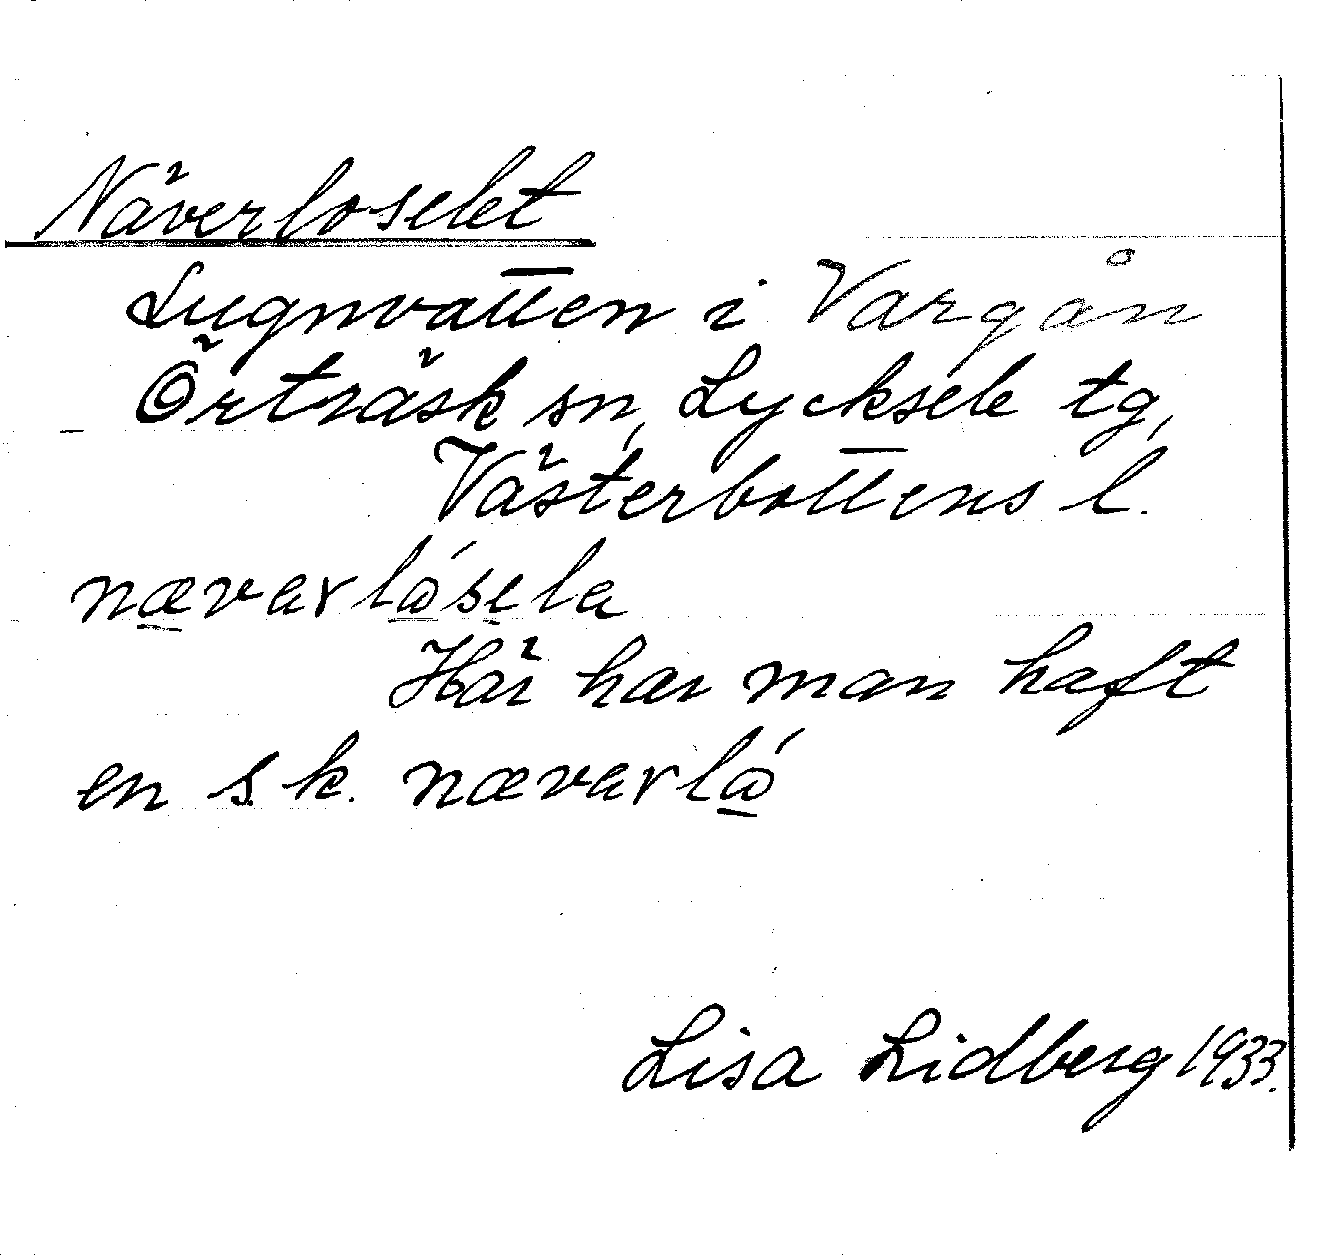 Näverloselet
Lugnvatten i Vargån
Örträsk sn, Lycksele tg,
Västerbottens l.
nævarlǻsela
Här har man haft
en s.k. nævarlǻ
Lisa Lidberg 1933.